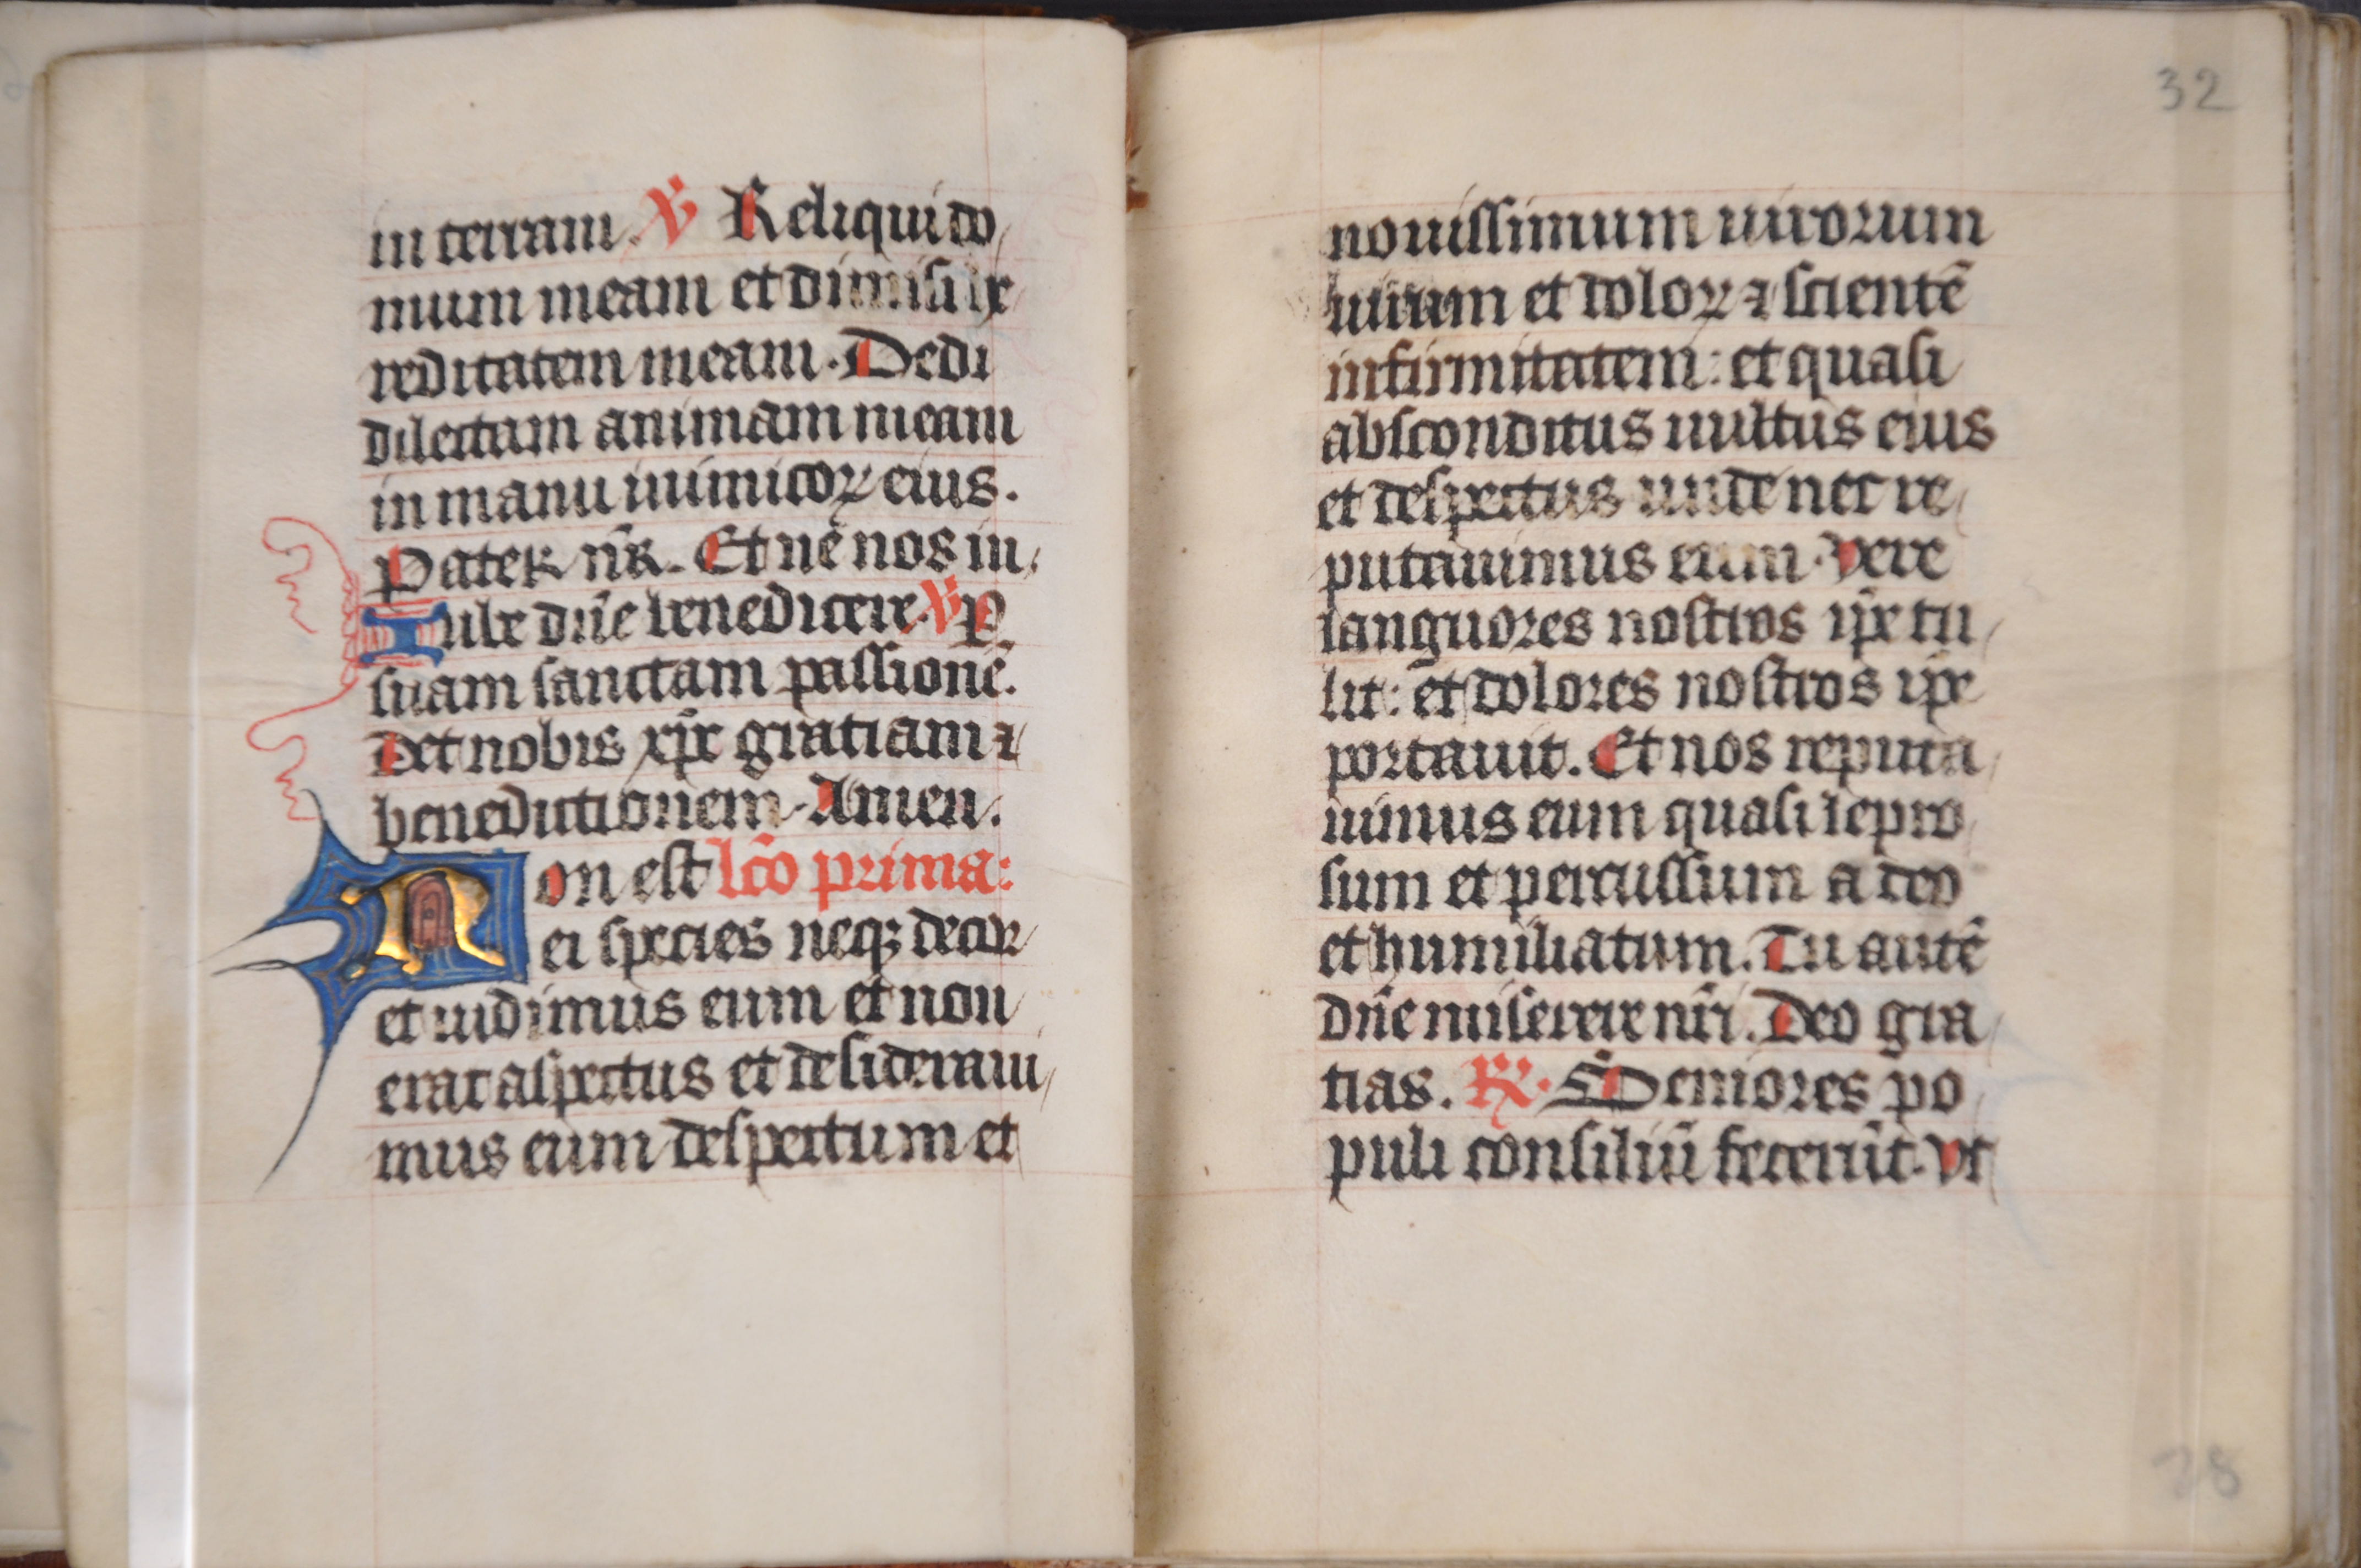 in terram. ℣ Reliqui do
mum meam et dimisi he
reditatem meam. Dedi
dilectam animam meam
in manu inimicoꝝ eius.
Pater nr̄. Et ne nos in.
Iube dn̄e benedicere. ℣ P̲
suam sanctam passionē.
Det nobis xp̄c gratiam ⁊
benedictionem. Amen.
Non est lcō prima:
ei species neqꝫ decor
et uidimus eum et non
erat aspectus et desideraui
mus eum despectum et
32
nouissimum uirorum
uirum et doloꝝ ⁊ scientē
infirmitatem: et quasi
absconditus uultus eius
et despectus unde nec re
putauimus eum. Vere
languores nostros ip̄e tu
lit: et dolores nostros ip̄e
portauit. Et nos reputa
uimus eum quasi lepro
sum et percussum a deo
et humiliatum. Tu autē
dn̄e miserere nr̄i. Deo gra
tias. ℟. Seniores po
puli consiliū fecerūt. Vt
38